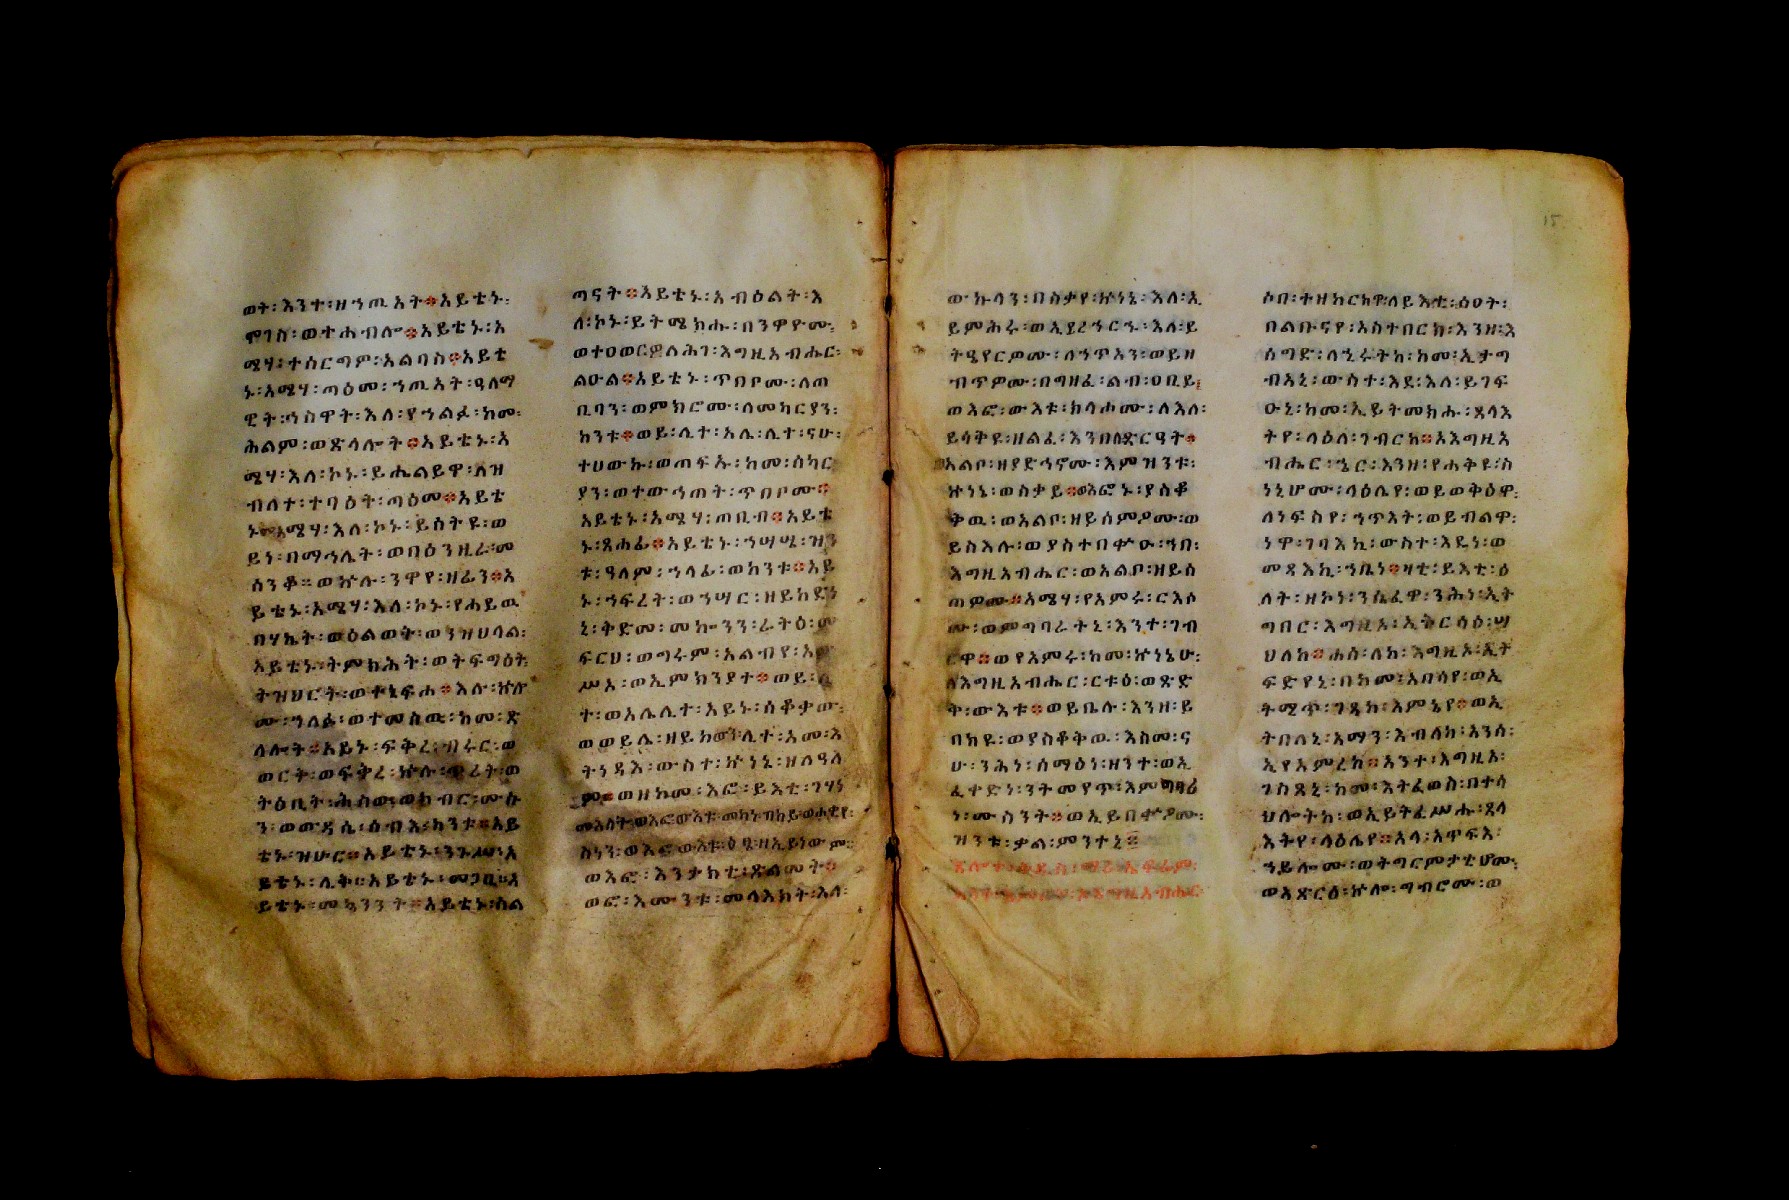 ወት፡እንተ፡ዘኀጢአት፨አይቴኑ፡
ሞገስ፡ወተሐብሎ፨አይቴኑ፡አ
ሜሃ፡ተሰርግዎ፡አልባስ፨አይቴ
ኑ፡አሜሃ፡ጣዕመ፡ኀጢአት፡ዓለማ
ዊት፡ኀስዋት፡እለ፡የኀልፉ፡ከመ፡
ሕልም፡ወጽላሎት፨አይቴኑ፡አ
ሜሃ፡እለ፡ኮኑ፡ይሔልይዋ፡ለዝ
ብለተ፡ተባዕት፡ጣዕመ፨አይቴ
ኑ፡አሜሃ፡እለ፡ኮኑ፡ይሰትዩ፡ወ
ይነ፡በማኅሌት፡ወበዕንዚራ፡መ
ሰንቆ፡፡ወኵሉ፡ንዋየ፡ዘፊን፨አ
ይቴኑ፡አሜሃ፡እለ፡ኮኑ፡የሐይዉ
በሃኬት፡ወዕልወት፡ወንዝህላል፡
አይቴኑ፡ትምክሕት፡ወትፍግዕት፡
ትዝህርት፡ወተኔፍሐ፨እሉ፡ኵሉ
ሙ፡ኀለፉ፡ወተመስዉ፡ከመ፡ጽ
ላሎት፨አይኑ፡ፍቅረ፡ብሩር፡ወ
ወርቅ፡ወፍቅረ፡ኵሉ፡ጥሪት፡ወ
ትዕቢት፡ወክብር፡ሙስ
ን፡ወውዳሴ፡ሰብእ፡ከንቱ፨አይ
ቴኑ፡ዝሁር፨አይቴኑ፡ንጉሥ፡አ
ይቴኑ፡ሊቅ፡፡አይቴኑ፡መጋቢ፡፡አ
ይቴኑ፡መኳንንት፡፡አይቴኑ፡ስል
ጣናት፨አይቴኑ፡አብዕልት፡እ
ለ፡ኮኑ፡ይትሜክሑ፡በንዋዮሙ፡
ልዑል፨አይቴኑ፡ጥበቦሙ፡ለጠ
ቢባን፡ወምክሮሙ፡ለመከርያን፡
ከንቱ፨ወይ፡ሊተ፡አሌ፡ሊተ፡ናሁ፡
ተሀውኩ፡ወጠፍኡ፡ከመ፡ሰካር
ያን፡ወተውኅጠት፡ጥበቦሙ፨
አይቴኑ፡አሜሃ፡ጠቢብ፨አይቴ
ኑ፡ጸሐፊ፨አይቴኑ፡ኀሣሤ፡ዝን
ቱ፡ዓለም፡ኀላፊ፡ወከንቱ፨አይ
ኑ፡ኀፍረት፡ወኀሣር፡ዘይከደነ
ኒ፡ቅድመ፡መኰንን፡ራትዕ፡መ
ፍርህ፡ወግሩም፡አልብየ፡አው
ሥአ፡ወኢምክንያተ፨ወይ፡ሊ
ት፡ወአሌሊተ፡አይኑ፡ሰቆቃው፡
ወወይሌ፡ዘይከውን፡ሊተ፡አመ፡እ
ትነዳእ፡ውስተ፡ኵነኔ፡ዘለዓለ
ም፨ወዘከመ፡እፎ፡ይእቲ፡ገሃነ
ወእፎ፡እንታክቲ፡ጽልመት፨
ወፎ፡እሙንቱ፡መላእክት፡እለ፡
ውኩላን፡በስቃየ፡ኵነኔ፡እለ፡ኢ
ይምሕሩ፡ወኢያረኅርኁ፡እለ፡ይ
ትዔየርዎሙ፡ለኀጥአን፡ወይዘ
ብጥዎሙ፡በግዘፈ፡ልብ፡ዐቢይ፡
ወእፎ፡ውእቱ፡ክላሖሙ፡ለእለ፡
ይሳቅዩ፡ዘልፈ፡እንበለጽርዓት፨
አልቦ፡ዘያድኅኖሙ፡እምዝንቱ፡
ኵነኔ፡ወስቃይ፨ወእፎኑ፡ያሰቆ
ቅዉ፡ወአልቦ፡ዘይሰምዖሙ፡ወ
ይስእሉ፡ወያስተበቍዑ፡ኀበ፡
እግዚአብሔር፡ወአልቦ፡ዘይሰ
ጠዎሙ፨አሜሃ፡የአምሩ፡ርእሶ
ሙ፡ወምግባራትኒ፡እንተ፡ገብ
ርዋ፨ወየአምሩ፡ከመ፡ኵነኔሁ፡
ለእግዚአብሔር፡ርቱዕ፡ወጽድ
ቅ፡ውእቱ፨ወይቤሉ፡እንዘ፡ይ
በክዩ፡ወያስቆቅዉ፡እስመ፡ና
ሁ፡ንሕነ፡ሰማዕነ፡ዘንተ፡ወኢ
ፈቀድነ፡ንትመየጥ፡እምግባሪ
ነ፡ሙስንት፨ወኢይበቍዖሙ፡
ዝንቱ፡ቃል፡ምንተኒ፨
ጸሎተ፡ቅዱስ፡ማሪ፡ኤፍሬም፡
ሶበ፡ተዘከርክዋ፡ለይእቲ፡ሰዐት፡
በልቡናየ፡አስተበርክ፡እንዘ፡እ
ሰግድ፡ለኂሩትከ፡ከመ፡ኢታግ
ብአኒ፡ውስተ፡እደ፡እለ፡ይገፍ
ዑኒ፡ከመ፡ኢይትመክሑ፡ጸላእ
ትየ፡ላዕለ፡ገብርከ፨አእግዚአ
ብሔር፡ኄር፡እንዘ፡የሐቅዩ፡ስ
ነኒሆሙ፡ላዕሌየ፡ወይወቅዕዋ፡
ለነፍስየ፡ኀጥእት፡ወይብልዋ፡
ነዋ፡ገባእኪ፡ውስተ፡እዴነ፡ወ
መጻእኪ፡ኀቤነ፨ዛቲ፡ይእቲ፡ዕ
ለት፡ዘኮነ፡ንሴፈዋ፡ንሕነ፡ኢት
ግበር፡እግዚኦ፡ኢትርሳዕ፡ሣ
ህለከ፨ሐሰ፡ለከ፡እግዚኦ፡ኢት
ፍድየኒ፡በከመ፡አበሳየ፡ወኢ
ትሚጥ፡ገጸከ፡እምኔየ፨ወኢ
ትበለኒ፡አማን፡እብለከ፡አንሰ፡
ኢየአምረከ፨አንተ፡እግዚኦ፡
ገስጸኒ፡ከመ፡እትፈወስ፡በተሳ
ህሎትከ፡ወኢይትፈሥሑ፡ጸላ
እትየ፡ላዕሌየ፨አላ፡አጥፍእ፡
ኀይሎሙ፡ወትግርምታቲሆሙ፡
ወአጽርዕ፡ኵሎ፡ግብሮሙ፡ወ
15